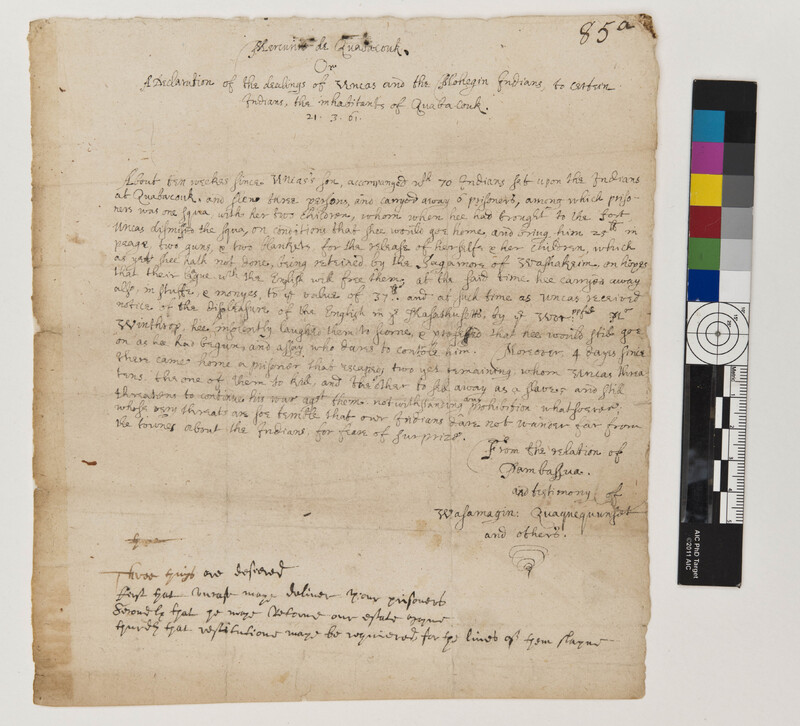 85a
Mercurius de Quabacouk.
Or
A Declaration of the dealings of Uncas and the Mohegin Indians, to certain
Indians, the inhabitants of Quabacouk.
21. 3. 61.
About ten weekes since Uncas's son, accompanyed wth 70 Indians set upon the Indians
at Quabacouk, and slew three persons, and carryed away 6 prisoners, among which priso-
ners was one squa, with her two children, whom when hee had brought to the Fort
Uncas dismisst the squa, on conditions that shee would goe home, and bring him 20th in
peage, two guns, & two blankets, for the release of herselfe & her children, which
as yet shee hath not done, being retained by the Sagamore of Washakeim, on hopes
that their league wth the English will free them, at the said time hee carryed away
also, in stuffe, & monyes, to ye value of 37th. and at such time as Uncas received
notice of the displeasure of the English in ye Masathusetts by ye Mr
Winthrop, hee insolently laughed them to scorne, & professed that hee would still goe
on as he had begun, and assay who dares to controle him. Moreover 4 dayes since
there came home a prisoner that escaped, two yet remaining, whom Uncas threa-
tens, the one of them to kill, and the other to sell away as a slave, and still
threatens to continue his war agst them, notwithstanding any prohibition whatsoever,
whose very threats are soe terrible that our Indians dare not wander far from
the townes about the Indians, for feare of surprize.
From the relation of
Nambassua.
and testimony of
Wasamagin: Quaqnequunset
and others.
Three thinges are desiered
first that Uncase maye deliver your prisoners
Secondly that he maye Retorne our estate
thirdly that restitutione maye be requiered for the lives of them slayne
AIC PhD Target
©2011 AIC